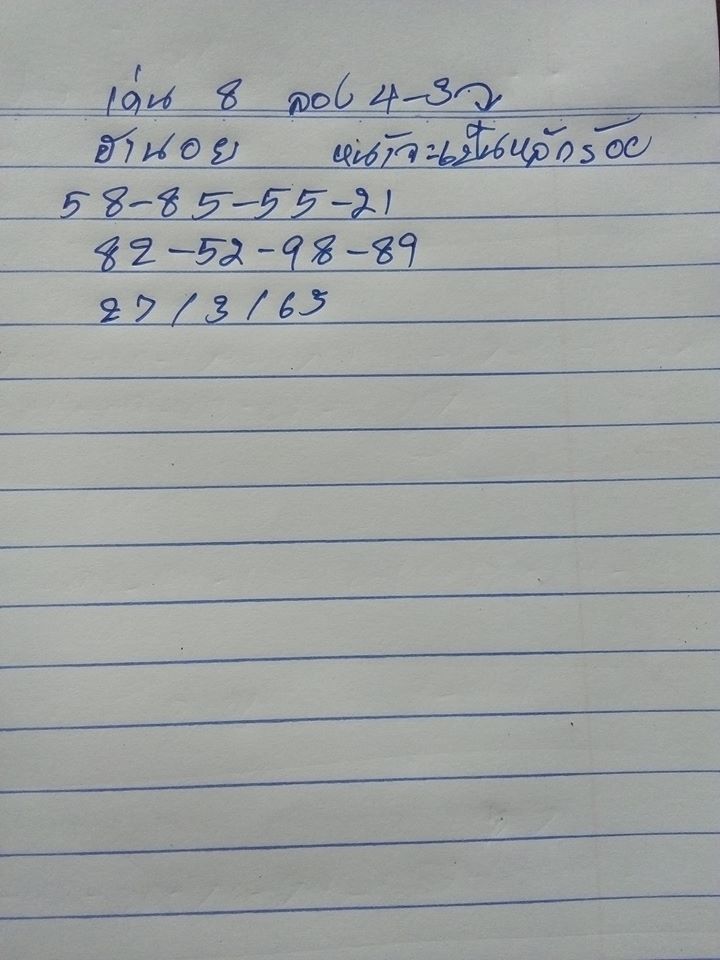 เด่น 8 รอง 4-3
ฮานอย น่าจะเป็นหลักร้อย
58-85-55-21
82-52-98-89
27/3/65